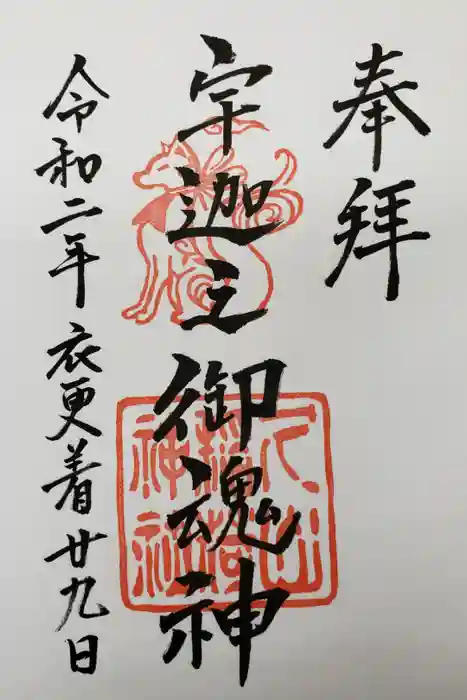 奉拝
宇迦之御魂神
令和二年衣更着廿九日